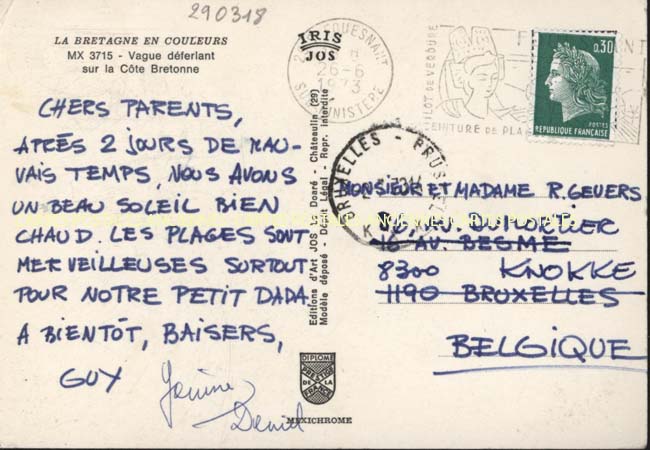 290318
LA BRETAGNE EN COULEURS
MX 3715 - Vague déferlant
sur la Côte Bretonne
IRIS
JOS
CHERS PARENTS,
APRÈS 2 JOURS DE MAU-
VAIS TEMPS, NOUS AVONS
UN BEAU SOLEIL BIEN
CHAUD. LES PLAGES SONT
MERVEILLEUSES SURTOUT
POUR NOTRE PETIT DADA.
A BIENTÔT, BAISERS,
GUY
Janine
Daniel
Editions d'Art JOS Le Doaré - Châteaulin (29)
Modèle déposé - Dépôt Légal - Repr. interdite
DIPLOME
PRESTIGE
DE LA
FRANCE
MEXICHROME
26-6
1973
SUD-FINISTERE
ILOT DE VERDURE
CEINTURE DE PLA
0,30
POSTES
REPUBLIQUE FRANÇAISE
BRUXELLES - BRUSSEL
MONSIEUR ET MADAME R. GEVERS
AV. DUMORTIER
16 AV. BESME
8300 KNOKKE
1190 BRUXELLES
BELGIQUE